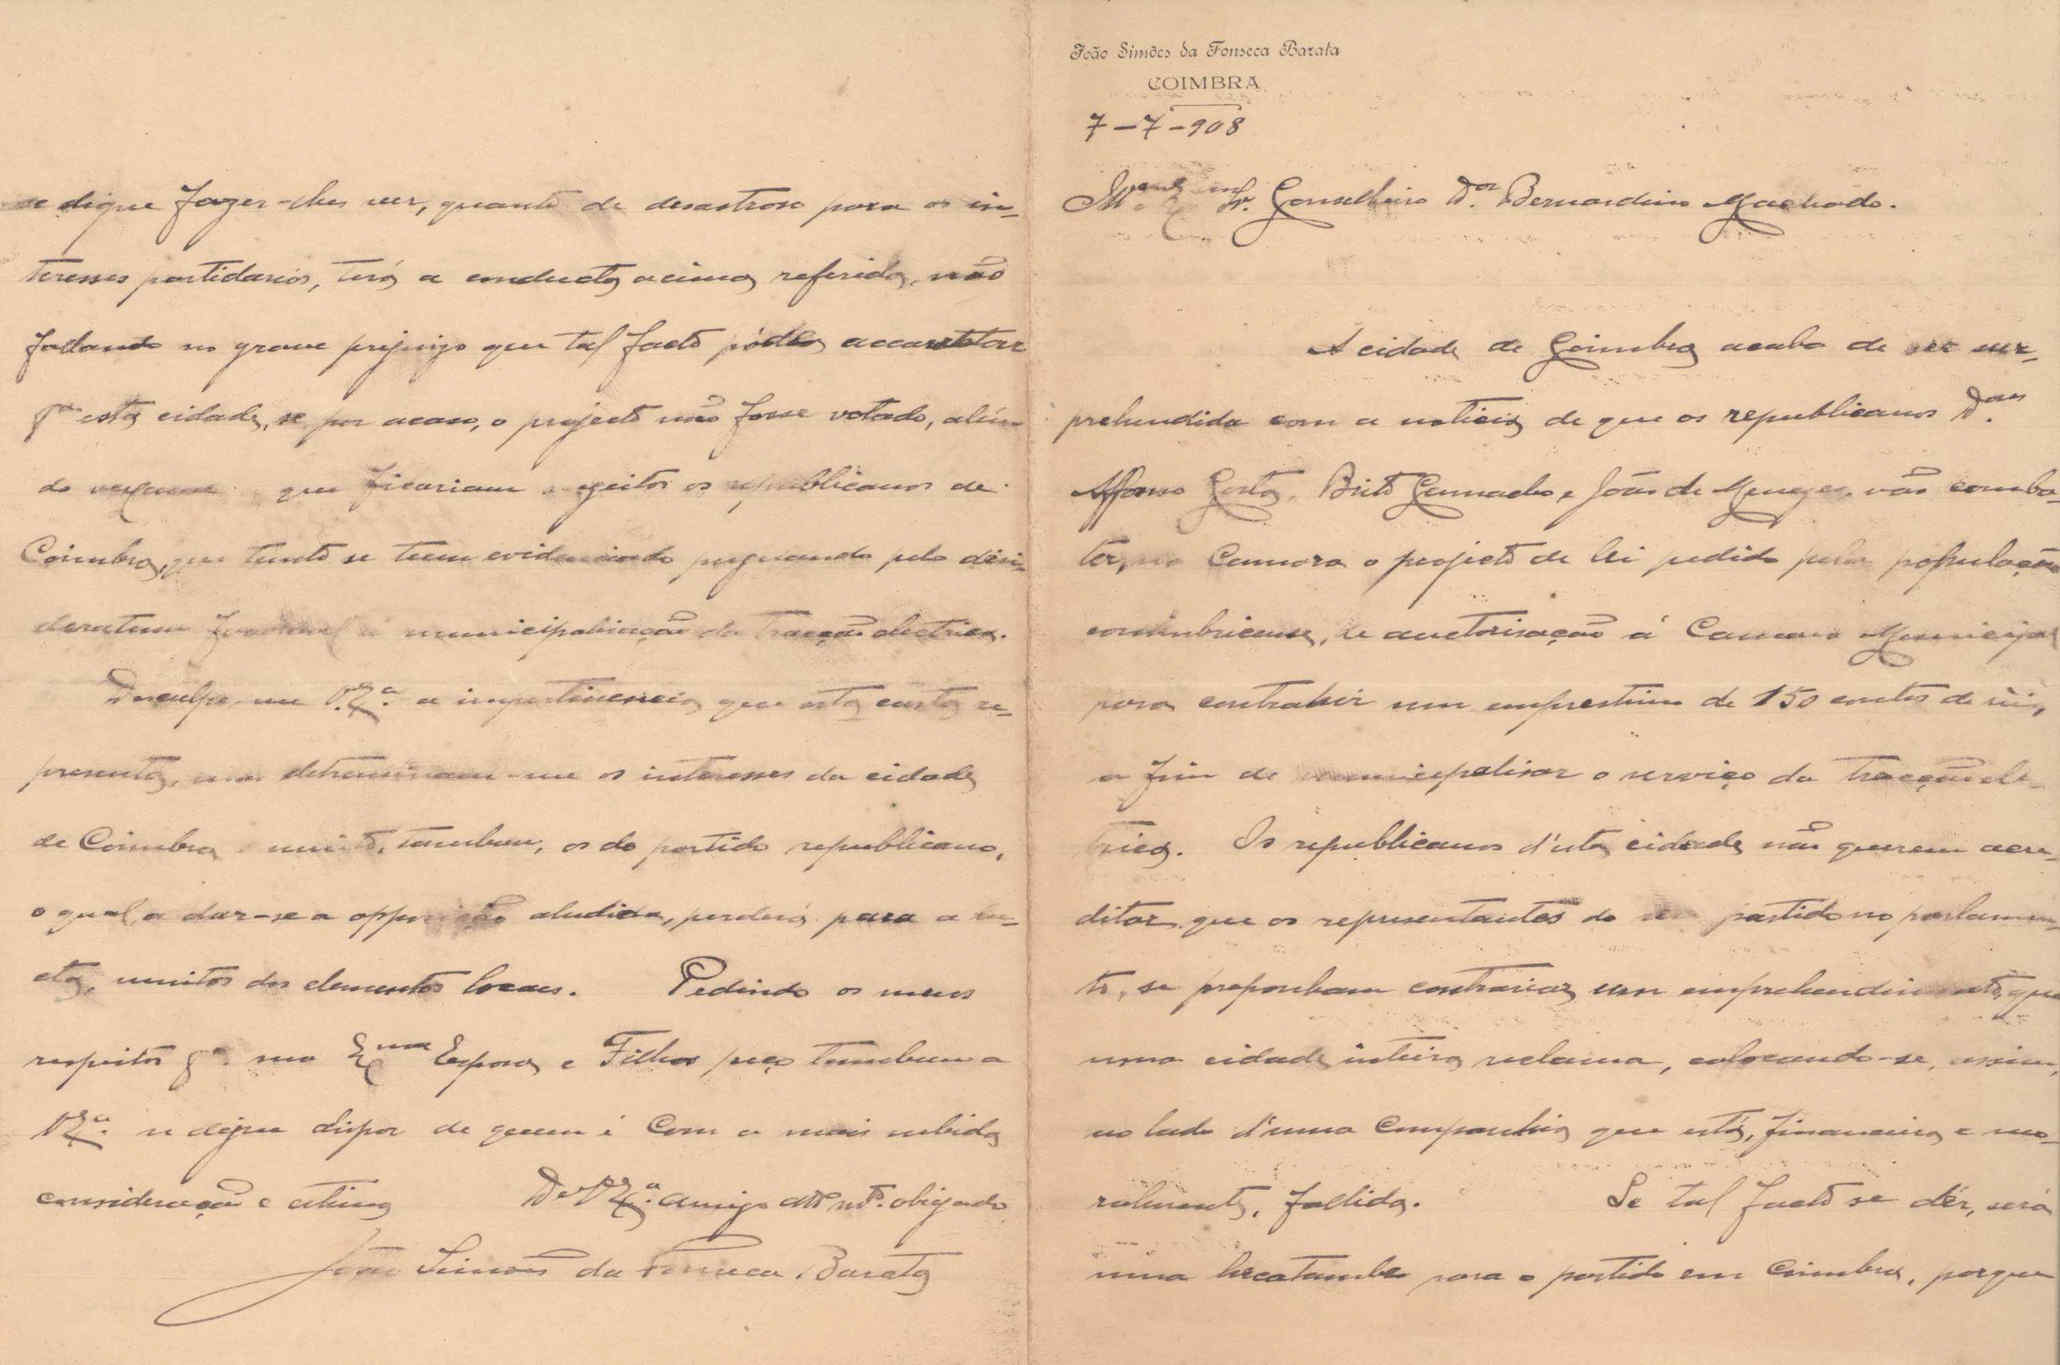 João Simões da Fonseca Barata
COIMBRA
7-7-908
Illmo Exmo Sr. Conselheiro Dor. Bernardino Machado.
A cidade de Coimbra acaba de ser sur-
prehendida com a noticia de que os republicanos Dres.
Affonso Costa, Brito Camacho e João de Menezes, vão comba-
ter, na Camara o projecto de lei pedido pela população
conimbricense, de auctorisação á Camara Municipal
para contrahir um emprestimo de 150 contos de réis,
a fim de municipalisar o serviço da tracção ele-
trica. Os republicanos d'esta cidade não querem acre-
ditar que os representantes do seu partido no parlamen-
to, se proponham contrariar um emprehendimento, que
uma cidade inteira reclama, collocando-se, assim,
ao lado d'uma Companhia que está, financeira e mo-
ralmente, fallida. Se tal facto se dér, será
uma hecatombe para o partido em Coimbra, porque
se digne fazer-lhes ver, quanto de desastroso para os in-
teresses partidarios, terá a conducta acima referida, não
fallando no grave prejuizo que tal facto póde accarretar
pa esta cidade, se por acaso, o projecto não fosse votado, além
do vexame que ficariam sugeitos os republicanos de
Coimbra, que tanto se teem evidenciado pugnando pelo desi-
deratum favoravel á municipalisação da tracção electrica.
Desculpe-me V. Exa. a impertinencia que esta carta re-
presenta, mas determinam-me os interesses da cidade
de Coimbra e muito, tambem, os do partido republicano,
o qual, a dar-se a opposição aludida, perderá para a lu-
cta, muitos dos elementos locaes. Pedindo os meus
respeitos pa. sua Exma Esposa e Filhos peço tambem a
V. Exa. se digne dispor de quem é Com a mais subida
consideração e estima De V. Exa. amigo atto. vor. obrigado
João Simões da Fonseca Barata